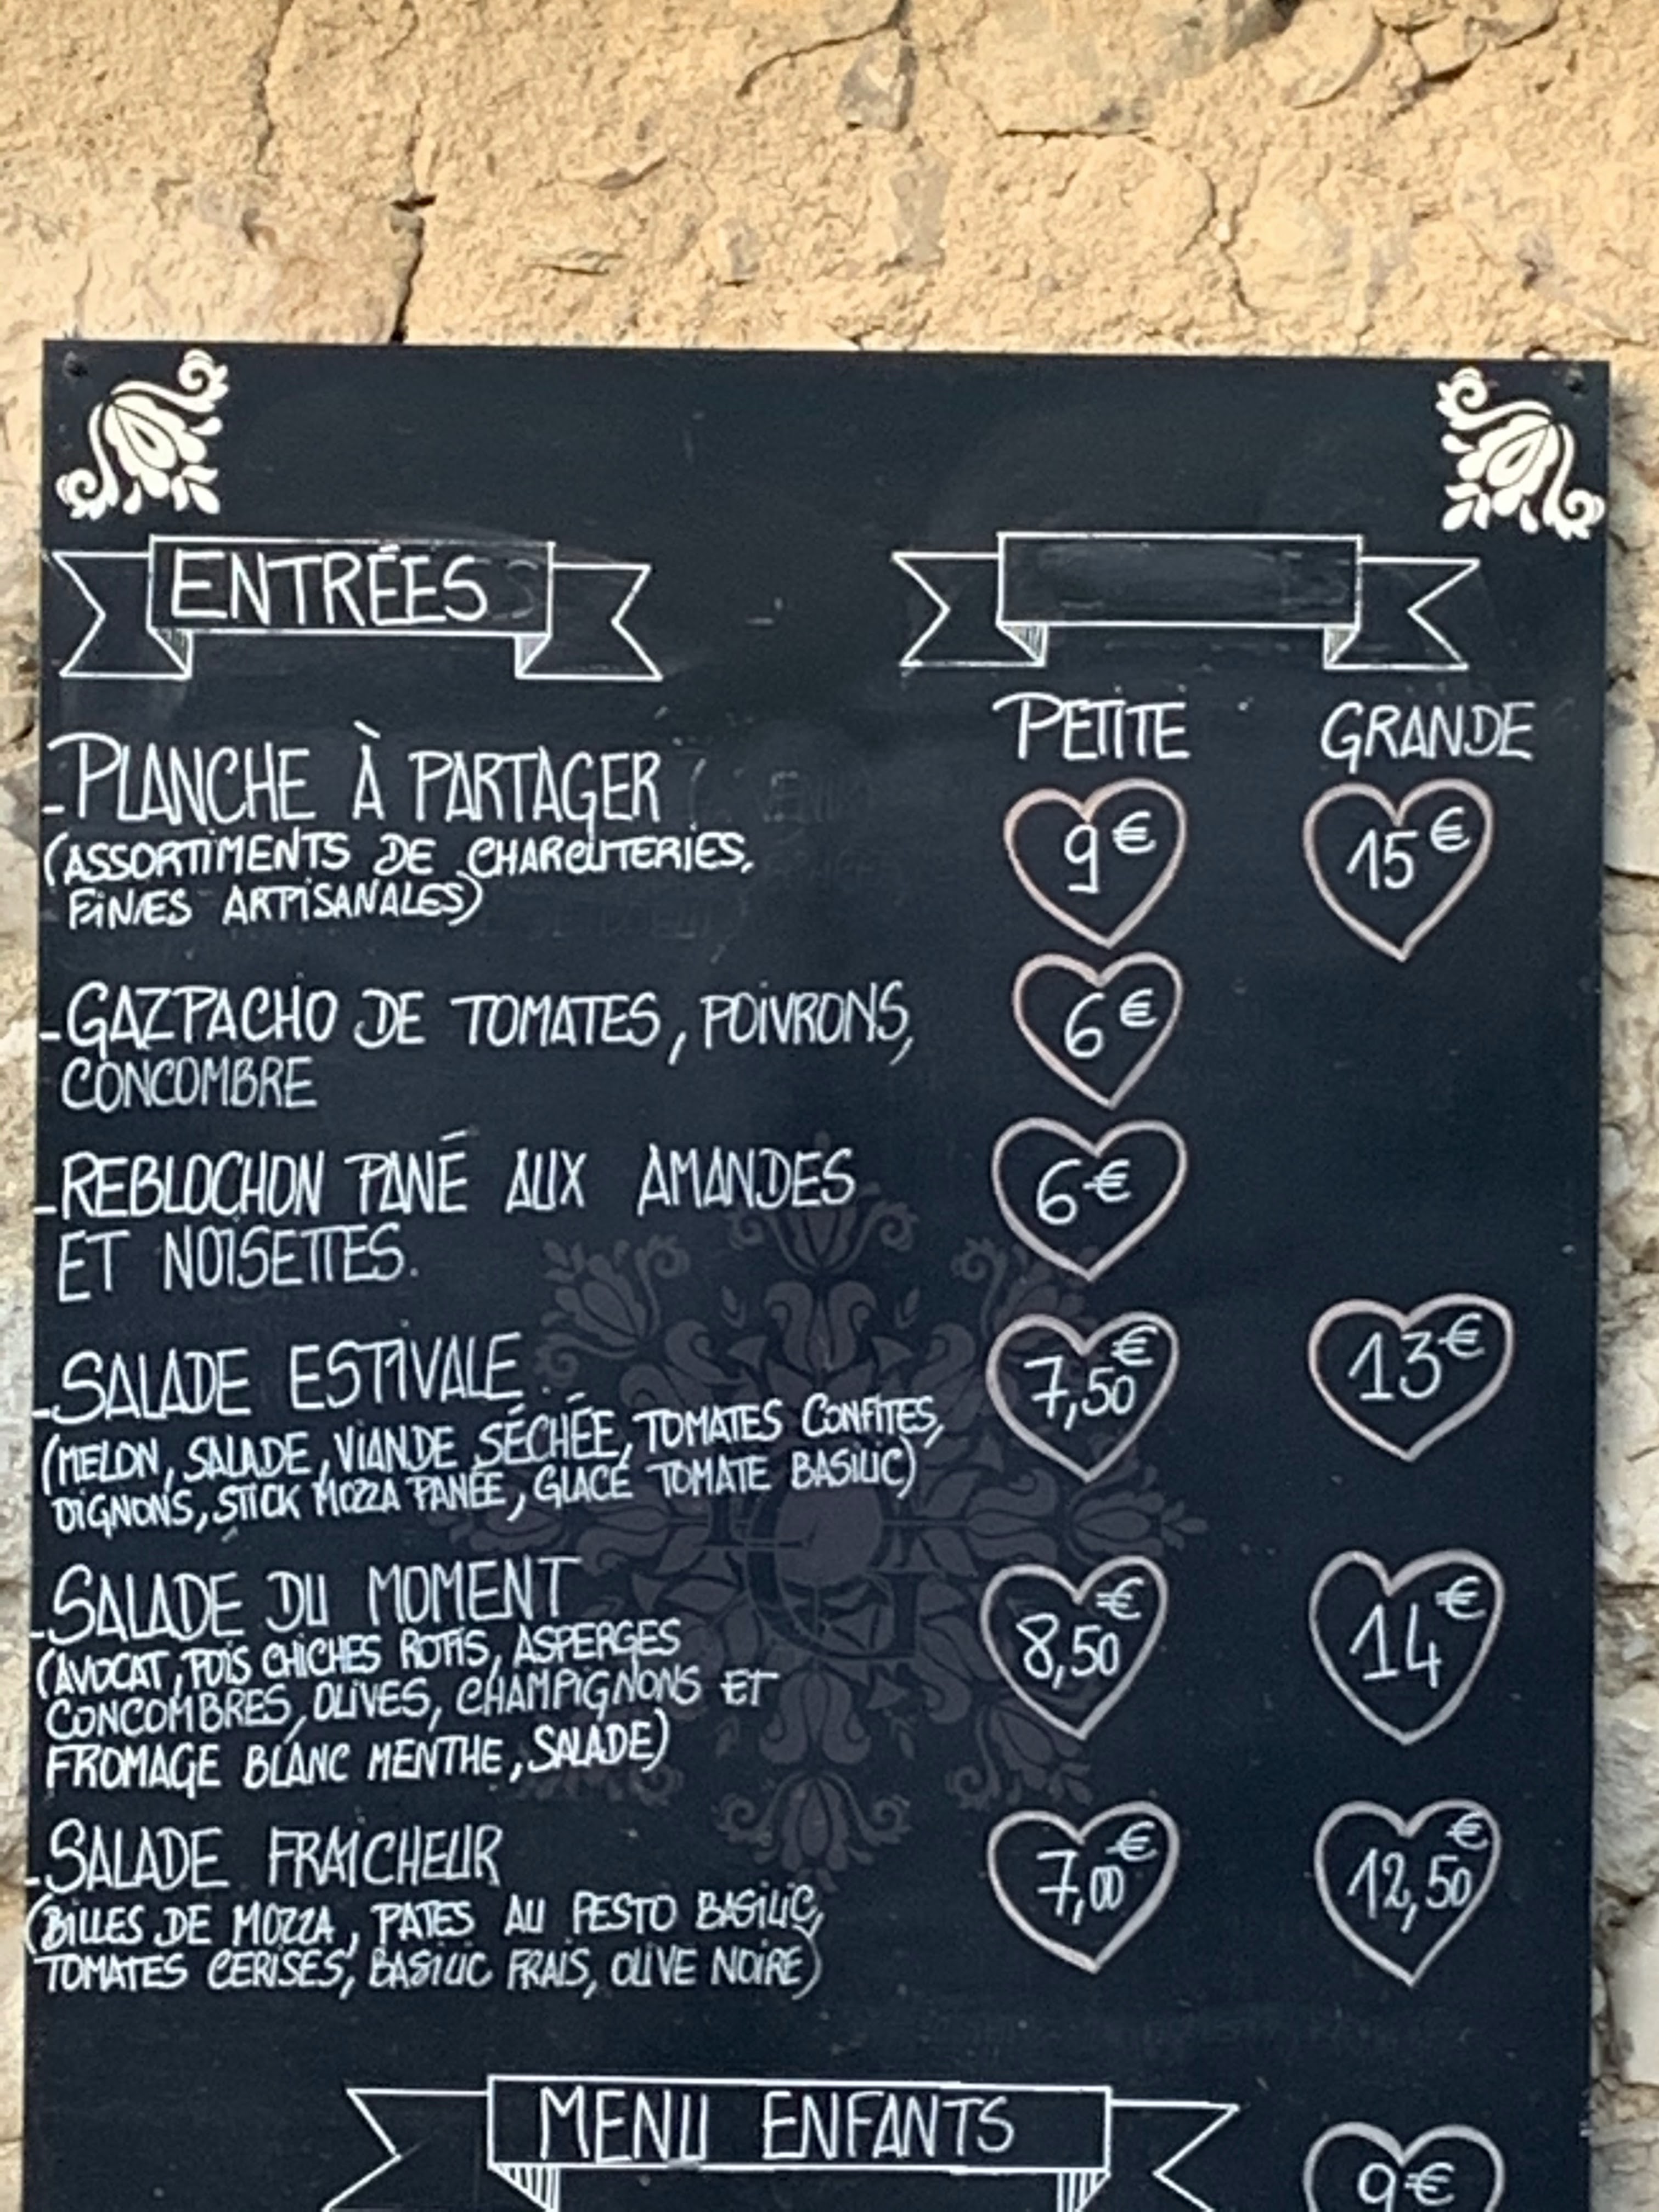 ENTRÉES
PETITE GRANDE
-PLANCHE À PARTAGER 9€ 15€
(ASSORTIMENTS DE CHARCUTERIES,
FINES ARTISANALES)
-GAZPACHO DE TOMATES, POIVRONS, 6€
CONCOMBRE
-REBLOCHON PANÉ AUX AMANDES 6€
ET NOISETTES.
-SALADE ESTIVALE 7,50€ 13€
(MELON, SALADE, VIANDE SÉCHÉE, TOMATES CONFITES,
OIGNONS, STICK MOZZA PANÉE, GLACE TOMATE BASILIC)
-SALADE DU MOMENT 8,50€ 14€
(AVOCAT, POIS CHICHES ROTIS, ASPERGES
CONCOMBRES, OLIVES, CHAMPIGNONS ET
FROMAGE BLANC MENTHE, SALADE)
-SALADE FRAICHEUR 7,00€ 12,50€
(BILLES DE MOZZA, PATES AU PESTO BASILIC,
TOMATES CERISES, BASILIC FRAIS, OLIVE NOIRE)
MENU ENFANTS 9€